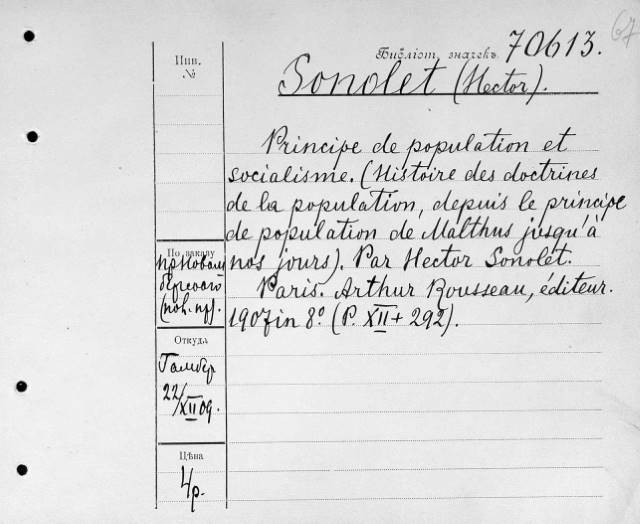 67
Инв.
№
Библіот. значекъ 70613.
Sonolet (Hector).
Principe de population et
socialisme. (Histoire des doctrines
de la population, depuis le principe
de population de Malthus jusqu'à
nos jours). Par Hector Sonolet.
Paris. Arthur Rousseau, éditeur.
1907 in 8° (P. XII + 292).
По заказу
Откуда
22/XII 09.
Цѣна
4 р.